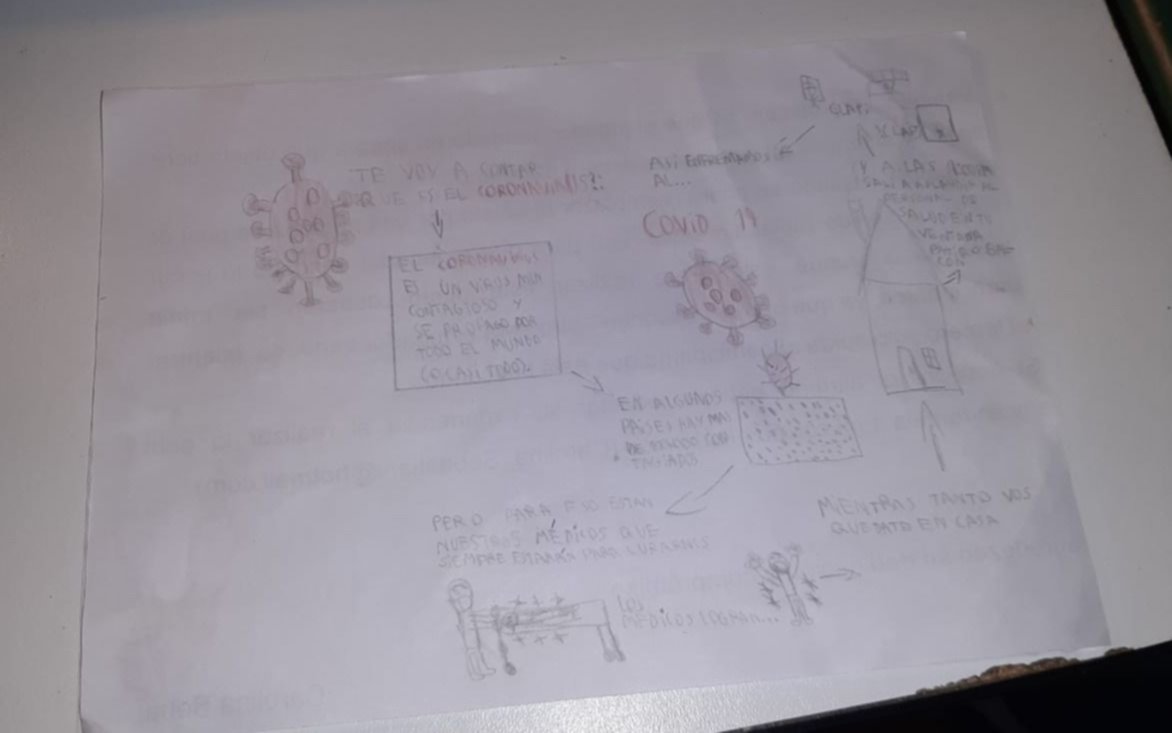 TE VOY A CONTAR
QUE ES EL CORONAVIRUS!:
EL CORONAVIRUS
ES UN VIRUS MUY
CONTAGIOSO Y
SE PROPAGO POR
TODO EL MUNDO
(O CASI TODO).
EN ALGUNOS
PAISES HAY MAS
CON
TAGIADOS
PERO PARA ESO ESTAN
NUESTROS MÉDICOS QUE
SIEMPRE ESTARÁN PARA CURARNOS
LOS
MÉDICOS
MIENTRAS TANTO VOS
QUEDATE EN CASA
¡Y A LAS
SALI A APLAUDIR AL
PERSONAL DE
SALUD EN TU
VENTANA
PATIO O BAL
CON
CLAP!
CLAP
ASÍ ENFRENTAMOS
AL...
COVID 19